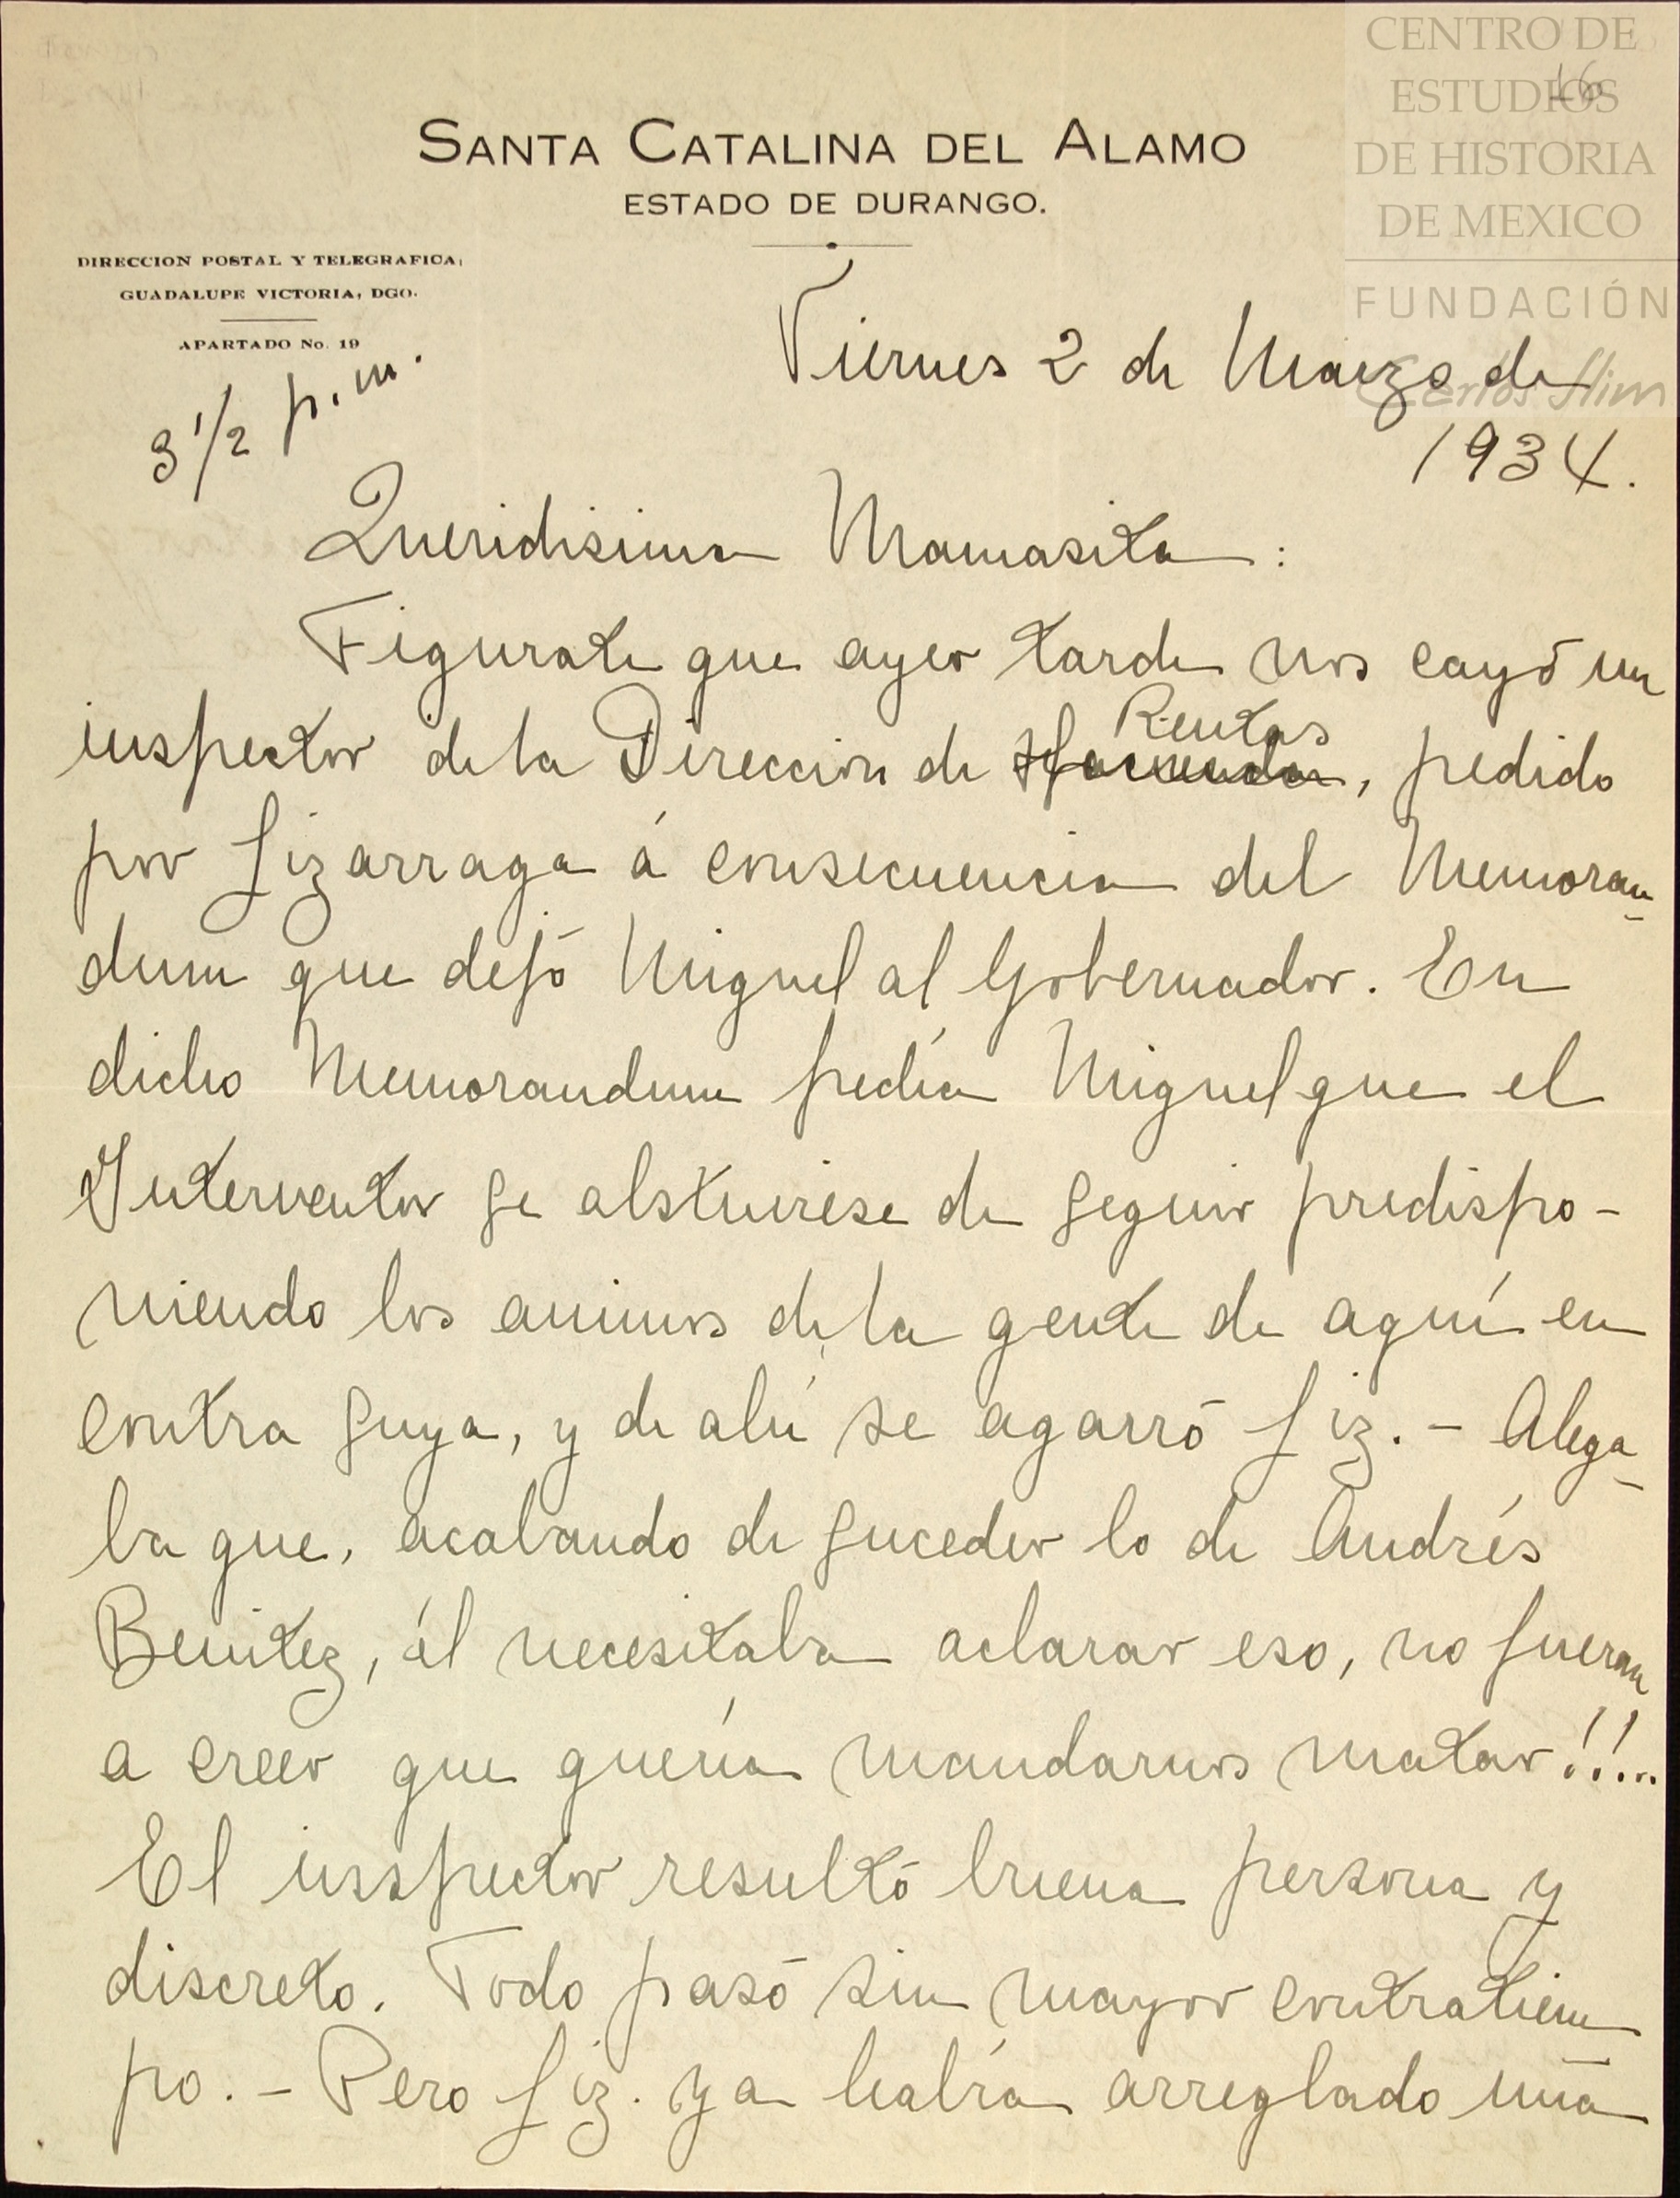 CENTRO DE
ESTUDIOS
DE HISTORIA
DE MEXICO
FUNDACIÓN
Carlos Slim
16
SANTA CATALINA DEL ALAMO
ESTADO DE DURANGO.
DIRECCION POSTAL Y TELEGRAFICA,
GUADALUPE VICTORIA, DGO.
APARTADO No. 19
3 1/2 p.m.
Viernes 2 de Marzo de
1934.
Queridisima Mamasita:
Figurate que ayer tarde nos cayó un
inspector de la Direccion de Hacienda Rentas, pedido
por Lizarraga á consecuencia del Memoran-
dum que dejó Miguel al Gobernador. En
dicho Memorandum pedía Miguel que el
Interventor se abstuviese de seguir predispo-
niendo los animos de la gente de aquí en
contra suya, y de ahí se agarró Liz. - Alega-
ba que, acabando de suceder lo de Andrés
Benitez, él necesitaba aclarar eso, no fueran
a creer que quería mandarnos matar!!...
El inspector resultó buena persona y
discreto. Todo pasó sin mayor contratiem
po. - Pero Liz. ya había arreglado una